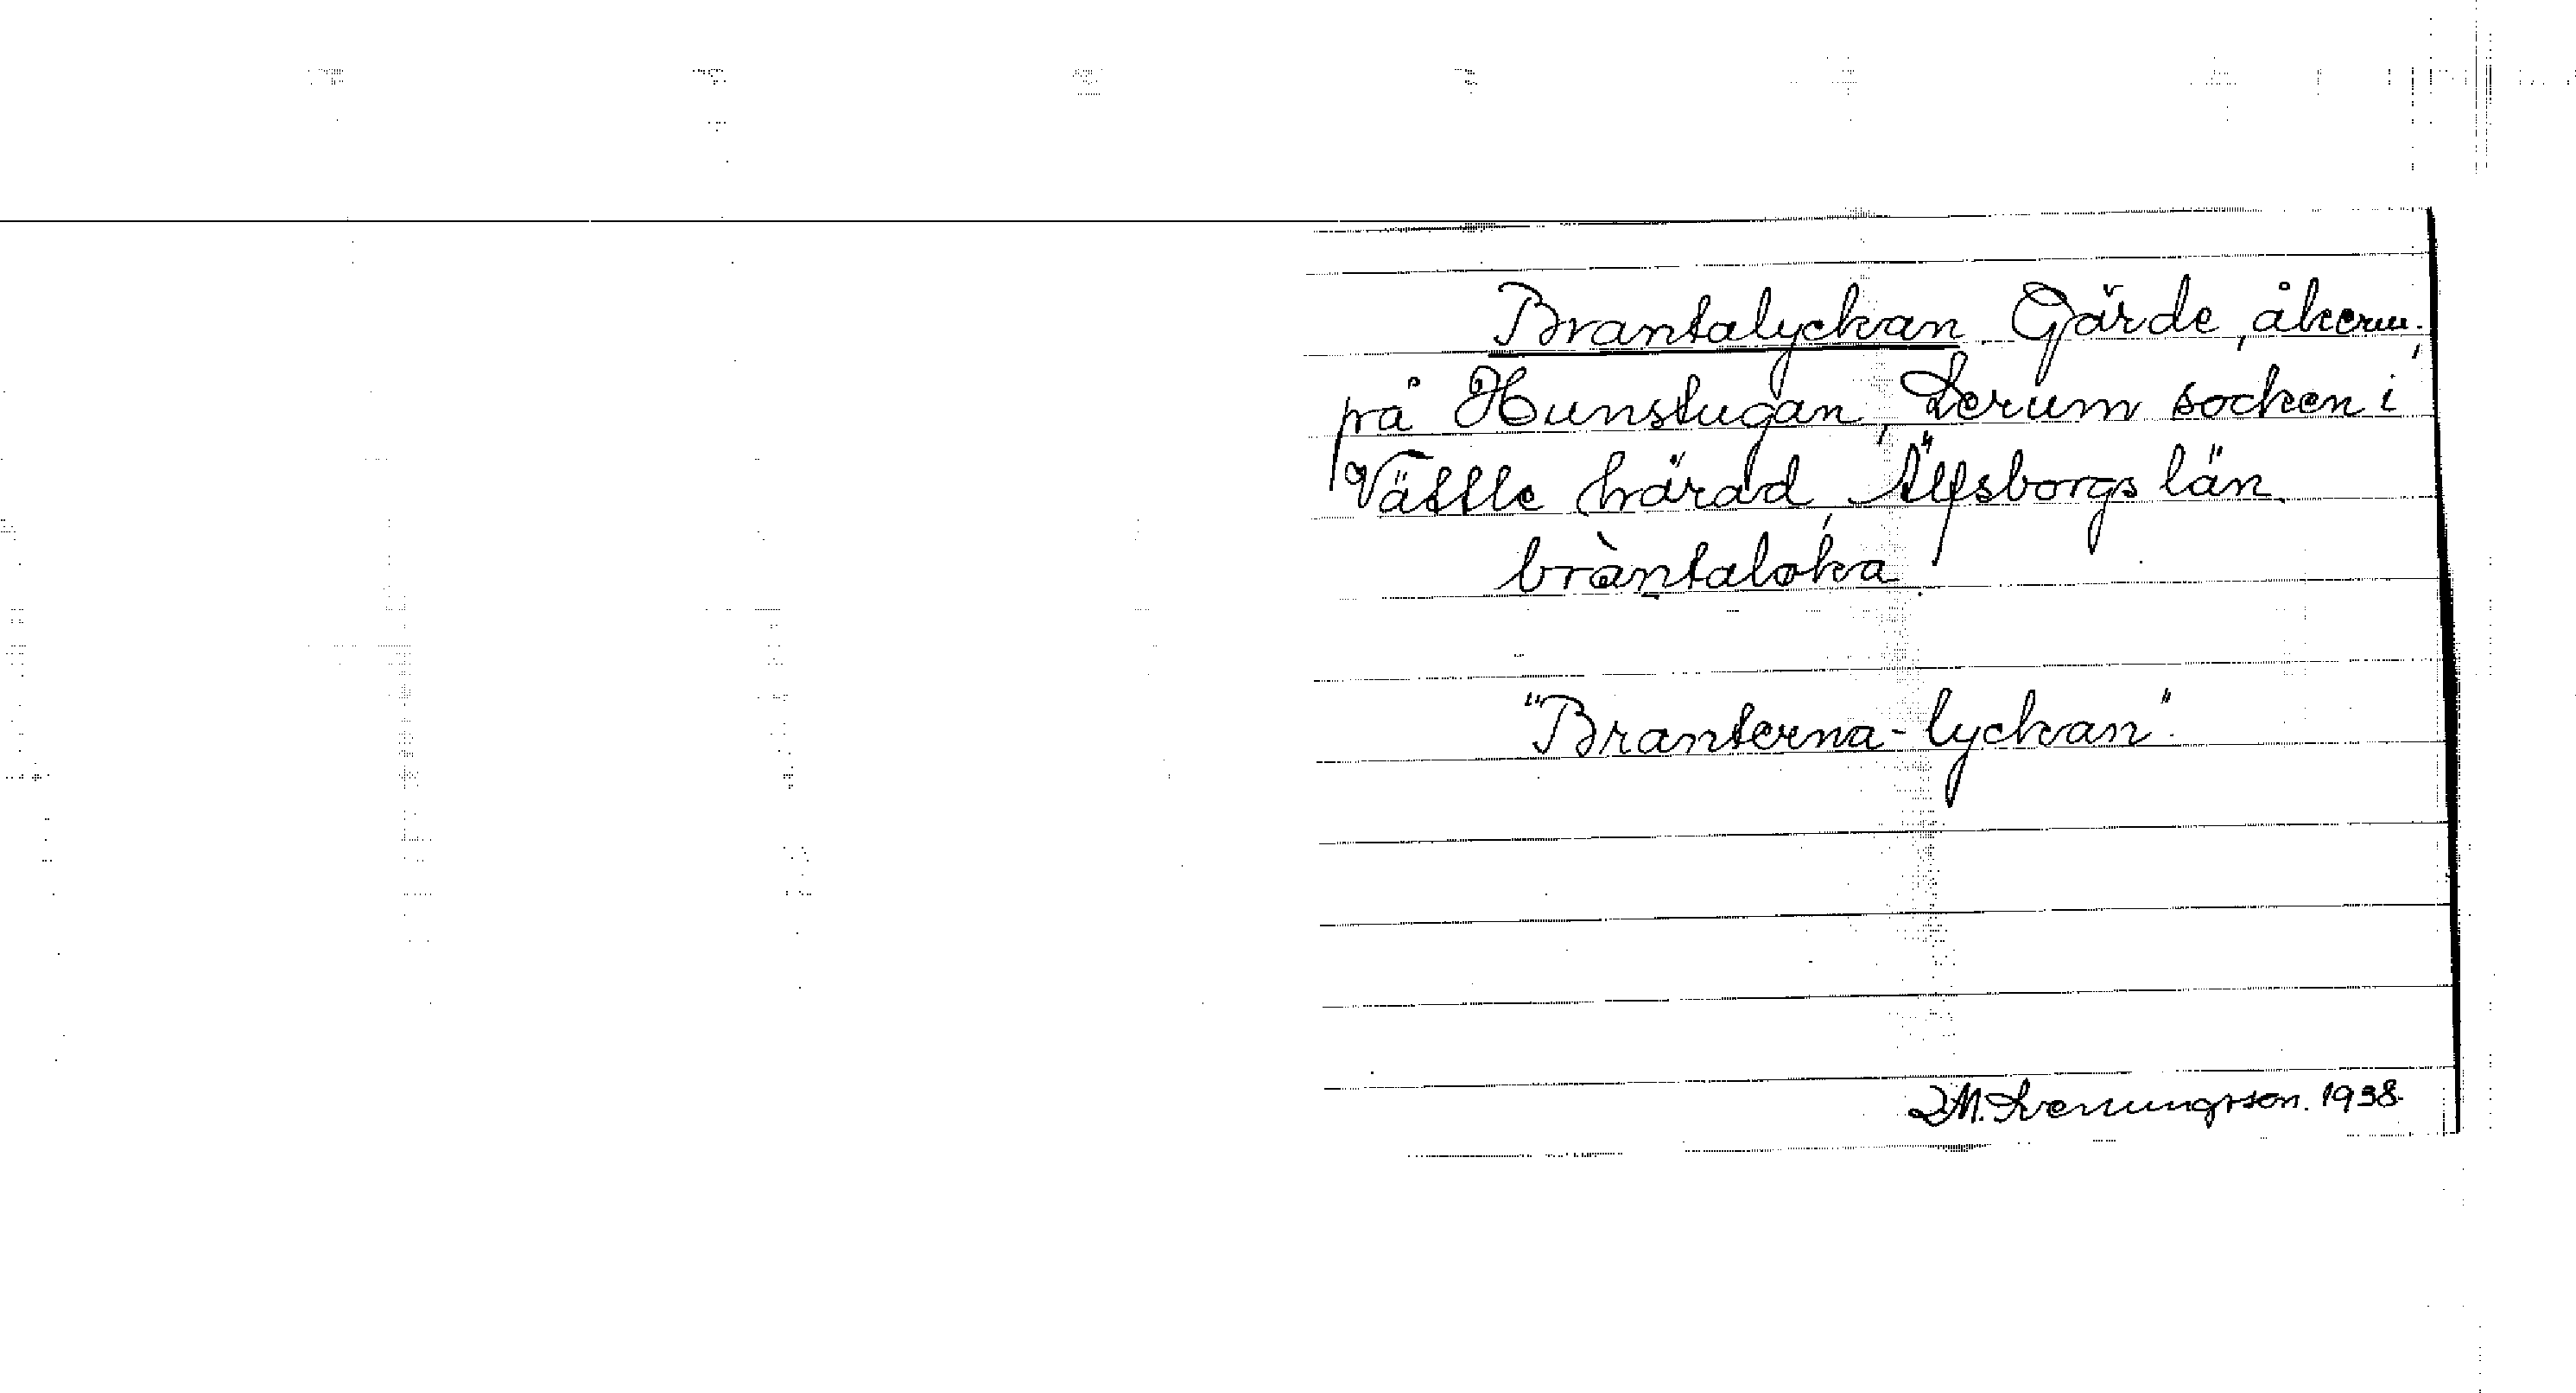 Brantalyckan. Gärde, åkerm.,
på Hunstugan, Lerum socken i
Vättle härad, Älfsborgs län.
bràntaløka.
"Branterna-lyckan".
D.M. Svenungsson. 1938.